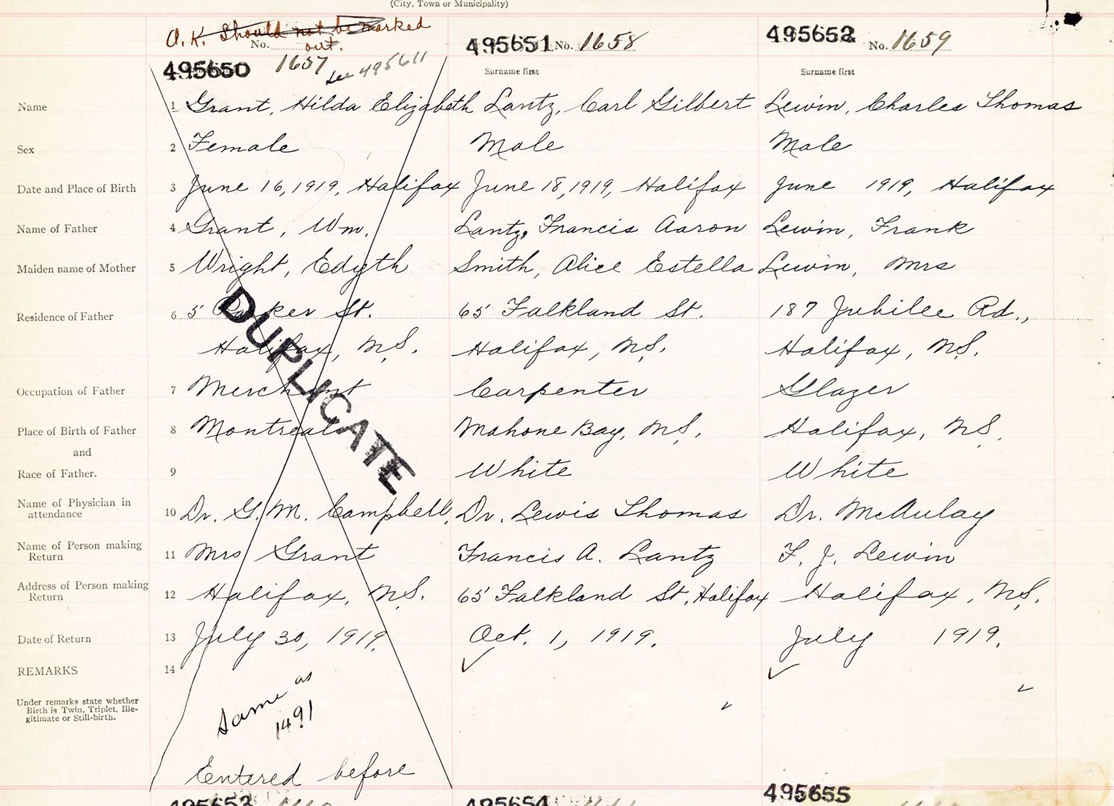 (City, Town or Municipality)
O.K. Should not be marked out.
495650 No. 1657 See 495611
495651 No. 1658
495652 No. 1659
Surname first
Surname first
Name 1 Grant, Hilda Elizabeth Lantz, Carl Gilbert Lewin, Charles Thomas
Sex 2 Female Male Male
Date and Place of Birth 3 June 16, 1919, Halifax June 18, 1919, Halifax June 1919, Halifax
Name of Father 4 Grant, Wm. Lantz, Francis Aaron Lewin, Frank
Maiden name of Mother 5 Wright, Edyth Smith, Alice Estella Lewin, Mrs
Residence of Father 6 5 St. 65 Falkland St. 187 Jubilee Rd.,
Halifax, N.S. Halifax, N.S. Halifax, N.S.
DUPLICATE
Occupation of Father 7 Merchant Carpenter Glazer
Place of Birth of Father 8 Montreal Mahone Bay, N.S. Halifax, N.S.
and
Race of Father. 9 White White
Name of Physician in attendance 10 Dr. G. M. Campbell, Dr. Lewis Thomas Dr. McAulay
Name of Person making Return 11 Mrs Grant Francis A. Lantz F. J. Lewin
Address of Person making Return 12 Halifax, N.S. 65 Falkland St, Halifax Halifax, N.S.
Date of Return 13 July 30, 1919. Oct. 1, 1919. July 1919.
REMARKS 14
Under remarks state whether
Birth is Twin, Triplet, Ille-
gitimate or Still-birth.
Same as
1491
Entered before
495653 495654 495655